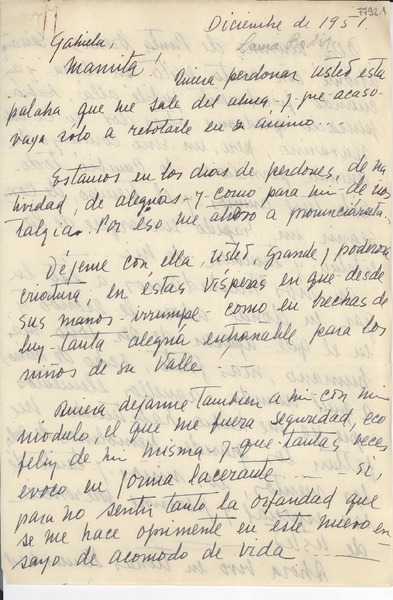 7792.1
Diciembre de 1951.
Gabriela.
Mamita! Quiera perdonar usted esta
palabra que me sale del alma - y que acaso
vaya solo a rebotarle en su ánimo...
Estamos en los días de perdones, de na-
tividad, de alegrías - y como para mí - de nos-
talgia. Por eso me atrevo a pronunciársela.
Déjeme con ella, usted, grande y poderosa
criatura, en estas vísperas en que - desde
sus manos - irrumpe - como en brechas de
luz - tanta alegría entrañable para los
niños de su Valle.
Quiera dejarme también a mí con mi
módulo, el que me fuera seguridad, eco
feliz de mí misma - y que tantas veces
evoco en forma lacerante...... - sí,
para no sentir tanto la orfandad que
se me hace oprimente en este nuevo en-
sayo de acomodo de vida